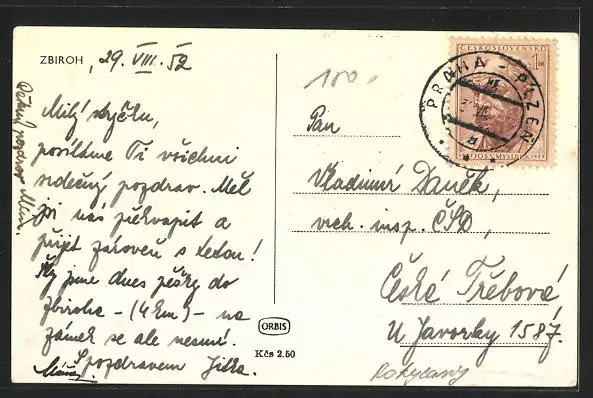 ZBIROH, 29. VIII. 52
Milý strýčku,
posíláme Ti všichni
srdečný pozdrav. Měl
jsi nás překvapit a
přijet zároveň s tetou!
My jsme dnes pěšky do
Zbiroha - (4 km) - na
zámek se ale nesmí.
S pozdravem Jitka.
pozdrav
100.-
Pan
Vladimír Daněk,
vrch. insp. ČSD,
Česká Třebová
U Javorky 1587.
Rokycany
ORBIS
Kčs 2.50
ČESKOSLOVENSKO
PRAHA - PLZEŇ
JOS. V. MYSLBEK 1952